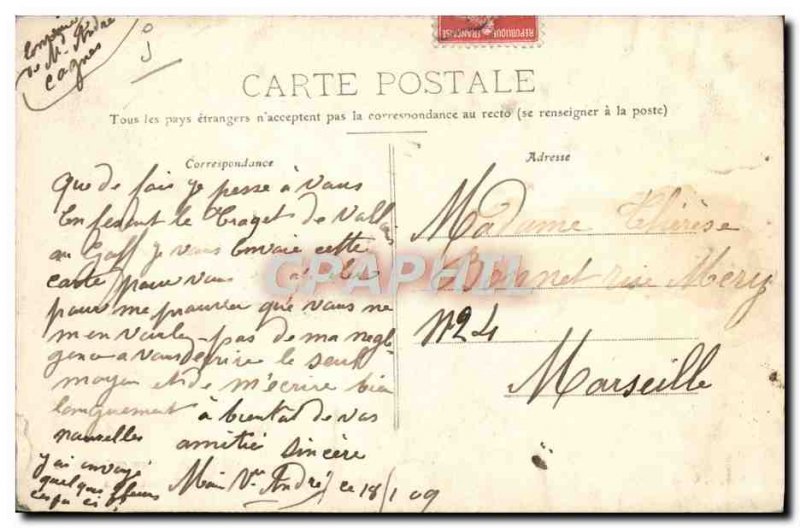 de Mme André
Cagnes
REPUBLIQUE FRANCAISE
CARTE POSTALE
Tous les pays étrangers n'acceptent pas la correspondance au recto (se renseigner à la poste)
Correspondance
Que de fois je pense à vous
En fesant le traget de Vallauris
au Golf je vous envoie cette
carte pour vous
pour me prouver que vous ne
m'en voulez pas de ma negli
gence a vous écrire le seul
moyen est de m'écrire bien
longuement à bientôt de vos
nouvelles amitié sincère
j'ai envoyé
quelque fleurs
Mme Vve André ce 18/1 09
Adresse
Madame Thérèse
Bonnet rue Mery
N° 24
Marseille
CPAPHIL